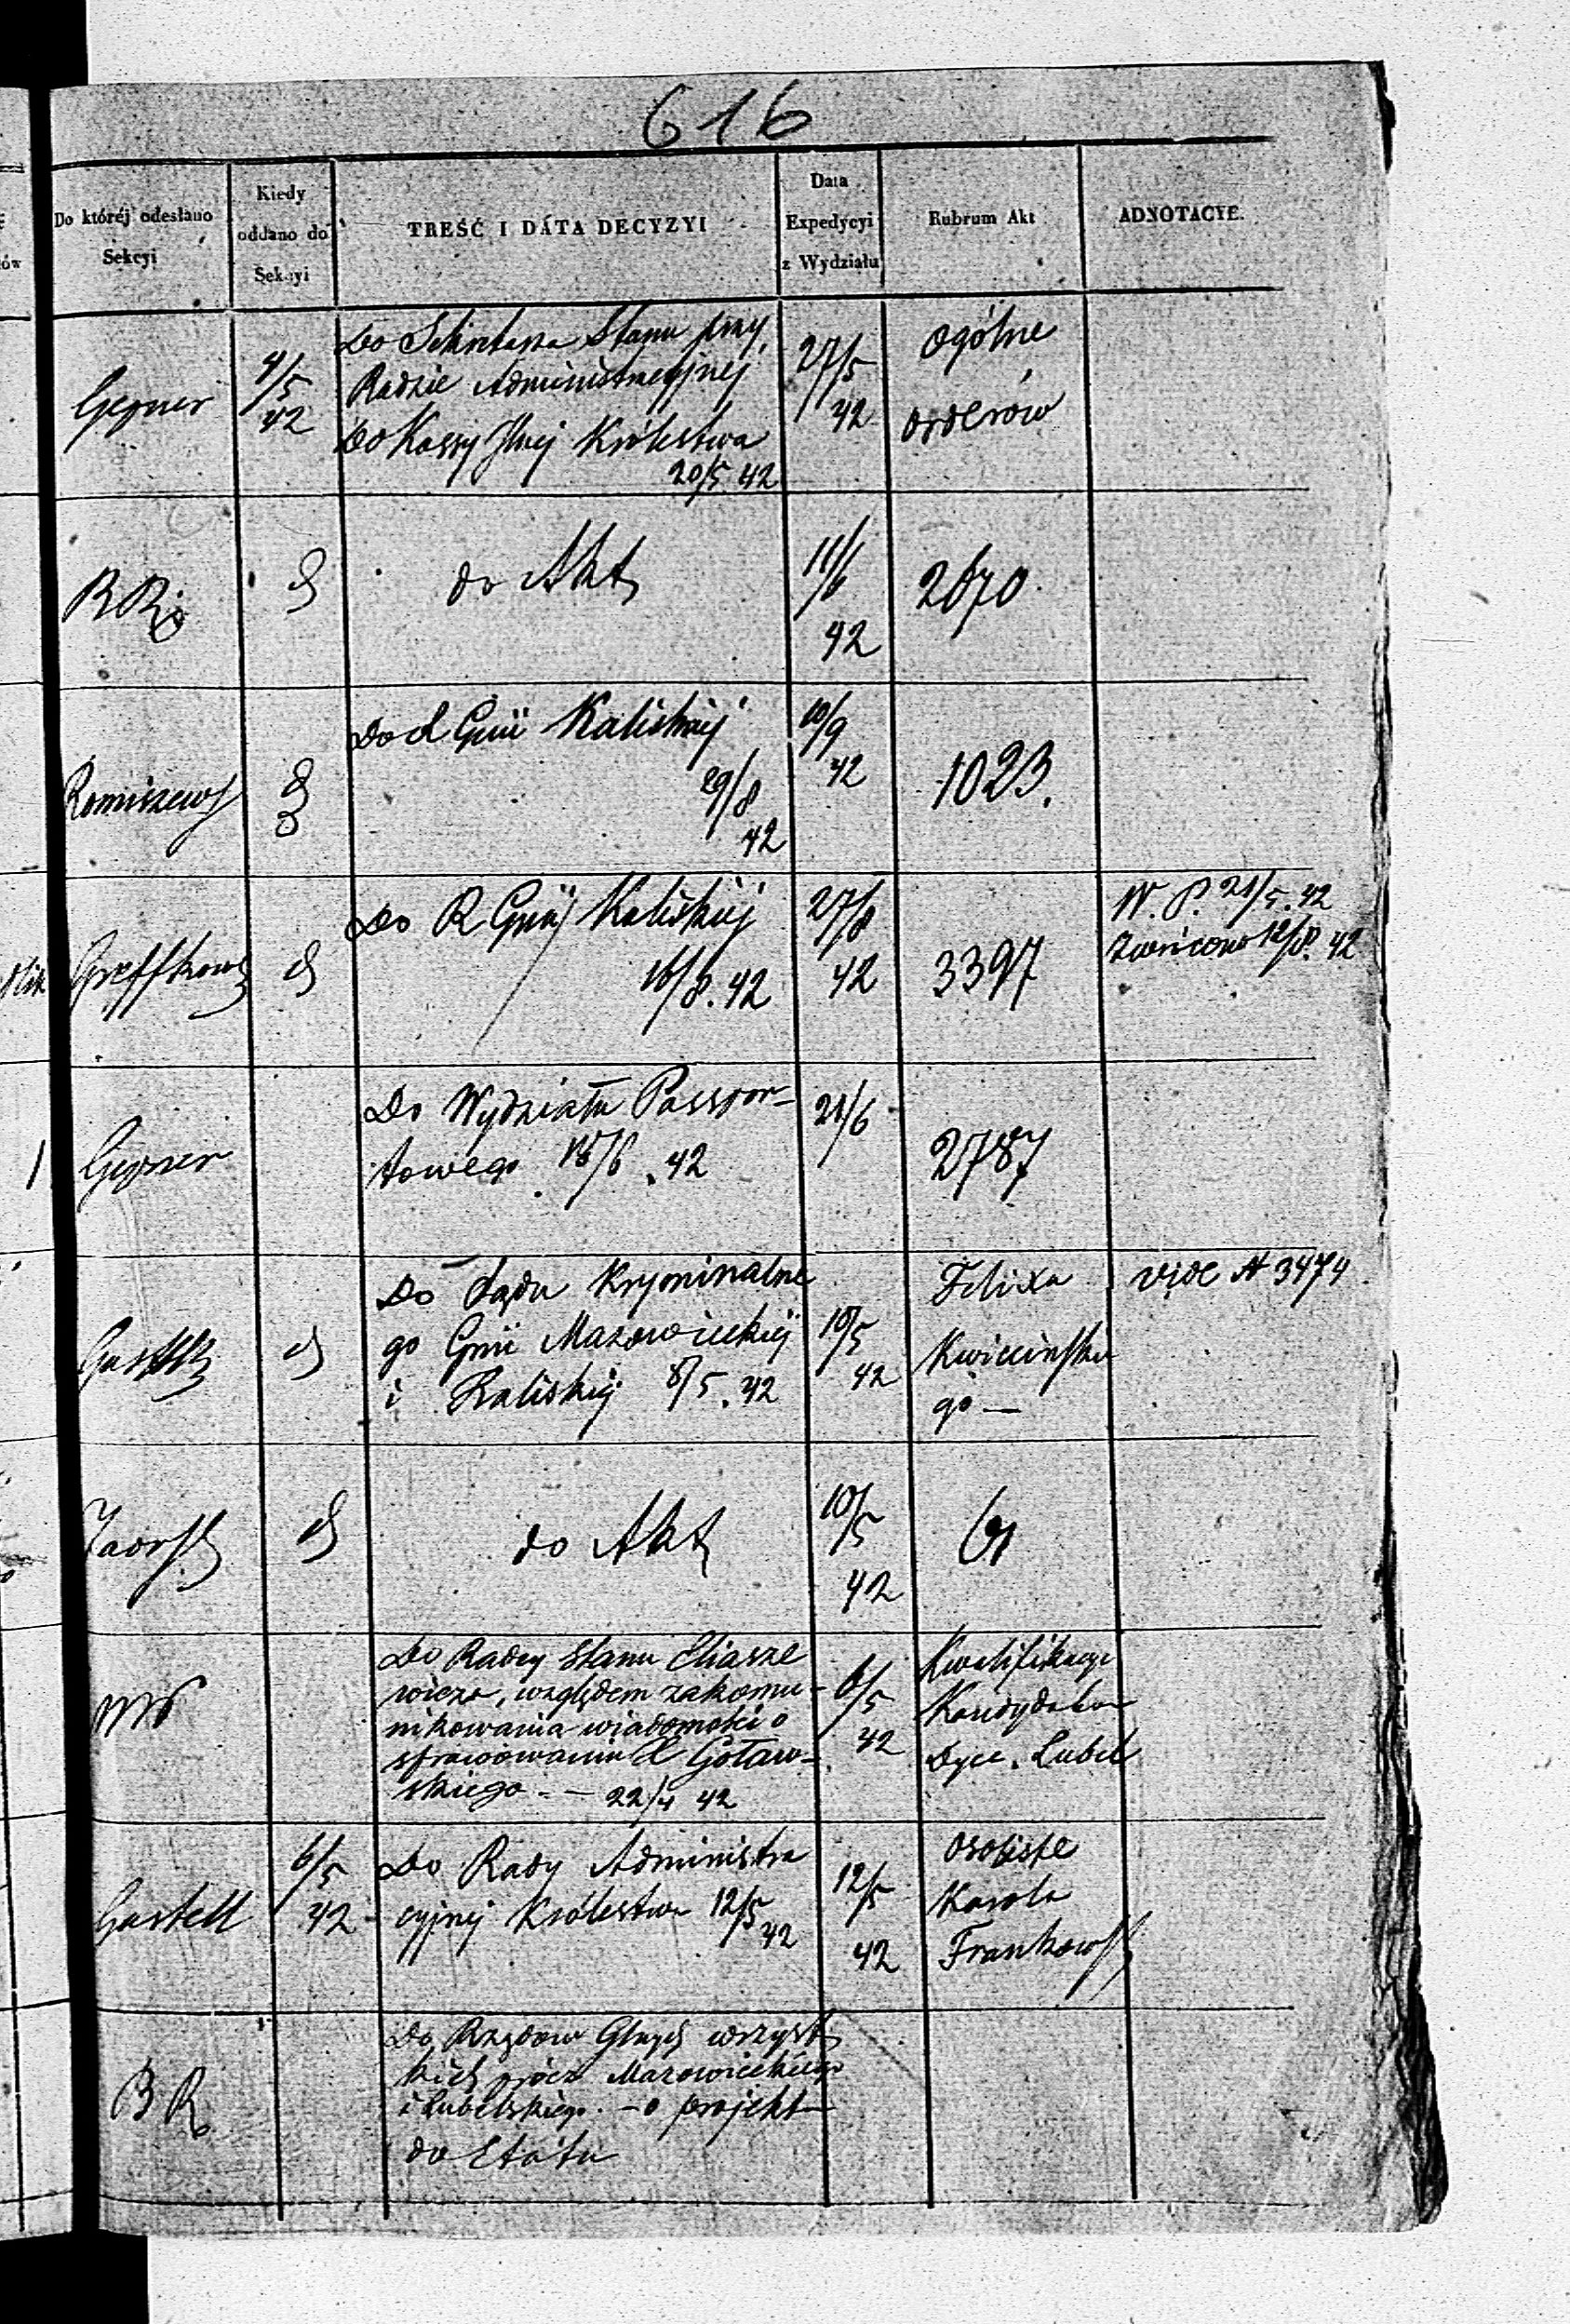 616
Do któréj odesłano
Sekcyi
Kiedy
oddano do
Sekcyi
TREŚĆ I DATA DECYZYI
Data
Expedycyi
z Wydziału
Rubrum Akt
ADNOTACYE.
Gepner
4/5
42
Do Sekretarza Stanu przy
Radzie Administracyjnej
Do Kassy Głnej Królestwa
20/5 42
27/5
42
ogólne
orderów
do Akt
11/6
42
2670
Romiszews
Gnii Kaliskiej
29/8
42
10/9
42
1023.
Do R Gnii Kaliskiej
16/8. 42
27/8
42
3397
W. P. 21/5. 42
Zwrócono 12/8. 42
Gepner
Do Wydziału Passpor-
towego 18/6. 42
21/6
2787
Do Sądu Kryminalne
go Gnii Mazowieckiej
i Kaliskiej 8/5. 42
10/5
42
Felixa
Kwiecińskie
go —
vide N 3474
do Akt
10/5
42
Do Radcy Stanu Eliasze
wicza, względem zakomu-
nikowania wiadomości o
sprawowaniu X Goław-
skiego. — 22/4 42
6/5
42
Kwalifikacye
Kandydatów
Dyec. Lubel
Gastell
6/5
42
Do Rady Administra
cyjnej Królestwa 12/5
42
12/5
42
osobiste
Karola
Frankows
B R
Do Rządów Głnych wszyst
kich prócz Mazowieckiego
i Lubelskiego. — o projekt
do Etatu